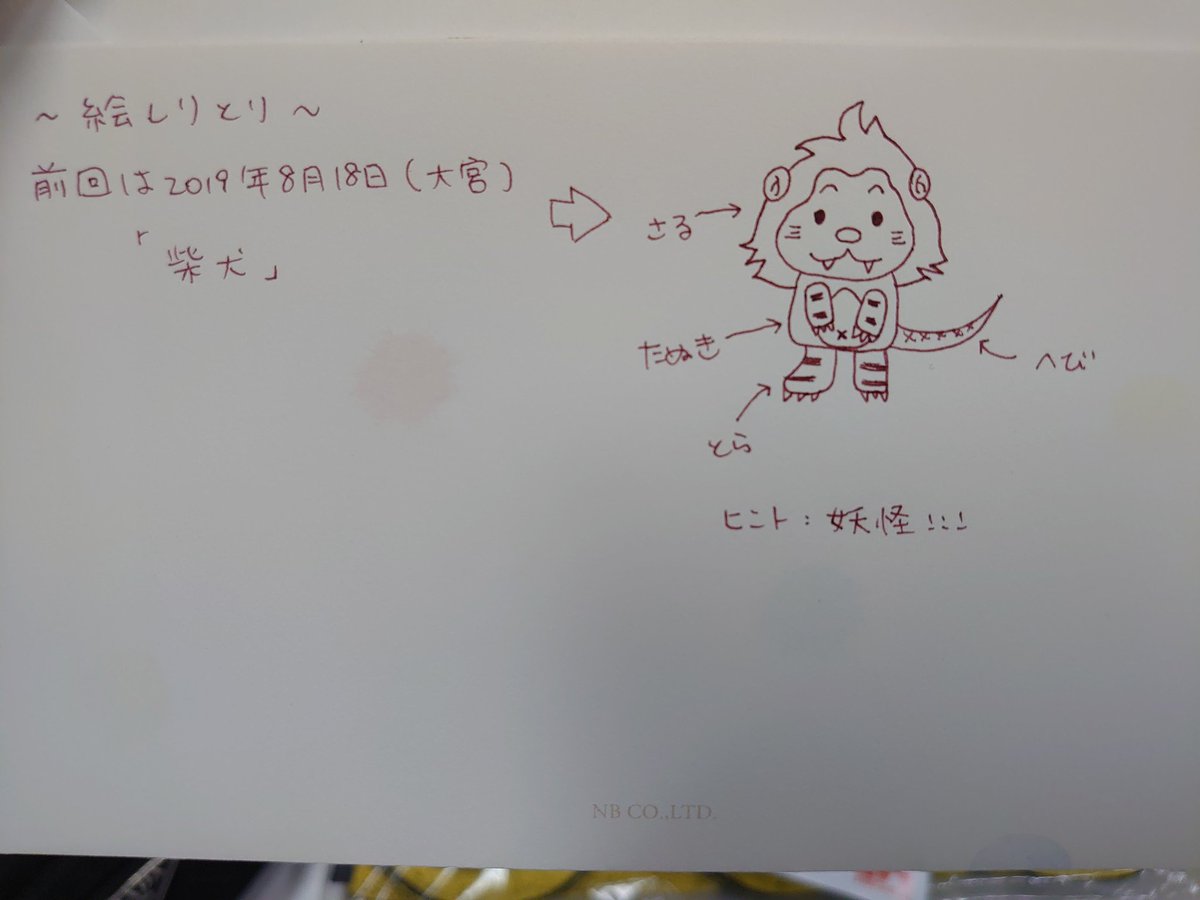 ～絵しりとり～
前回は2019年8月18日(大宮)
「柴犬」
さる
たぬき
へび
とら
ヒント：妖怪!!!
NB CO.,LTD.